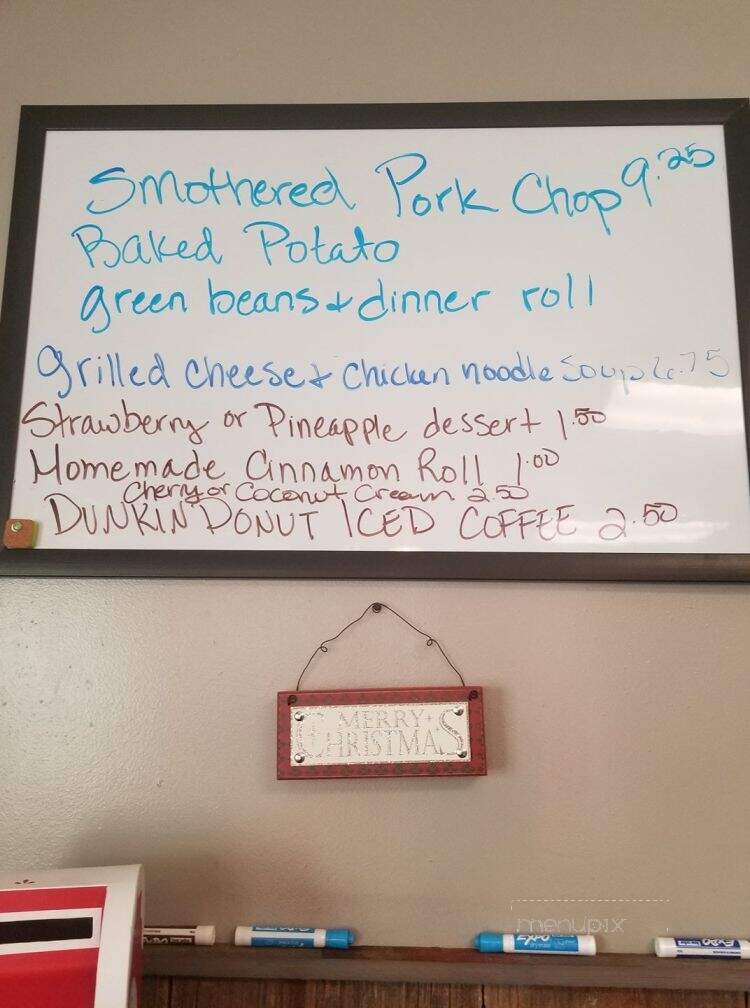 Smothered Pork Chop 9.25
Baked Potato
green beans & dinner roll
grilled cheese & chicken noodle soup 6.75
Strawberry or Pineapple dessert 1.50
Homemade Cinnamon Roll 1.00
Cherry or Coconut Cream 2.50
DUNKIN DONUT ICED COFFEE 2.50
MERRY
CHRISTMAS
menupix
EXPO
EXPO